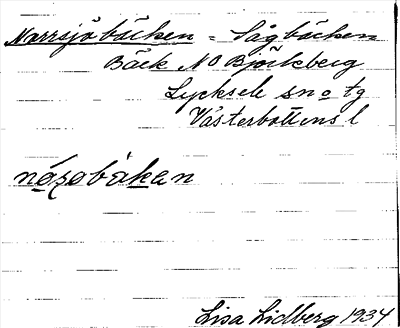 Norrsjöbäcken = Sågbäcken
Bäck NO Björkberg
Lycksele sn o tg
Västerbottens l
Lisa Lidberg 1934